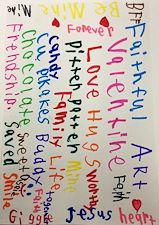 Mine
Be Mine
BFF
Forever
Faithful
Valentine
ART
Love Hugs worthy
Faith
Pitter patter Mine
Candy Family Life
Cupcakes Buddy
Chocolate Sweet
Friendship
Saved
Smile
Giggle
Jesus
heart